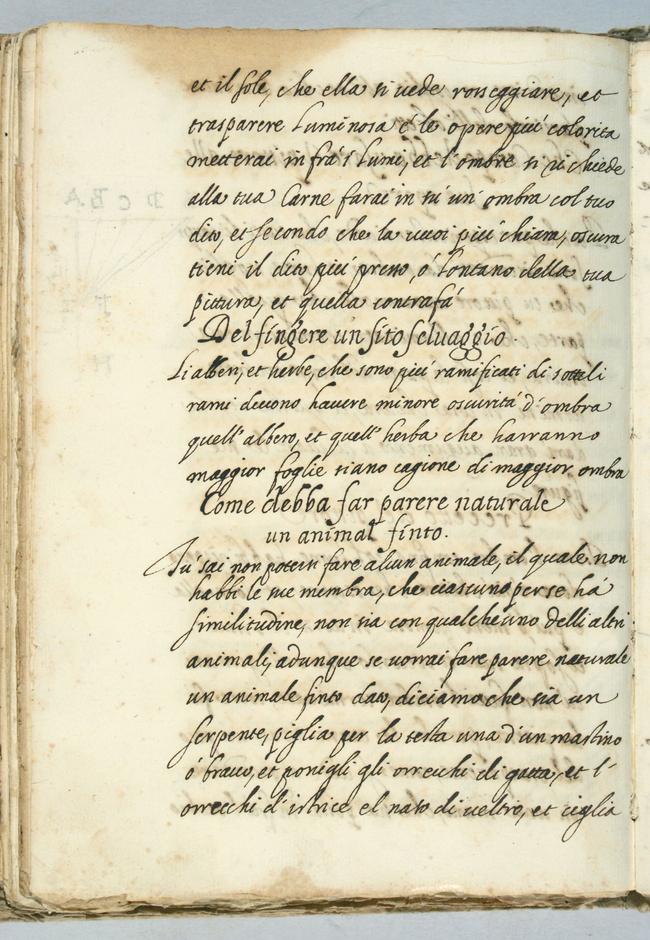 et il sole, che ella si uede rosseggiare, et
trasparere luminosa é le opere piú colorita
metterai in frá i lumi, et l'ombre si richiede
alla tua Carne farai in sú un' ombra col tuo
dito, et secondo che la uuoi piú chiara, oscura
tieni il dito piú presso, ó lontano della tua
pittura, et quella contrafá
Del fingere un sito seluaggio.
Li alberi, et herbe, che sono piú ramificati di sottili
rami deuono hauere minore oscuritá d'ombra
quell' albero, et quell' herba che harranno
maggior foglie siano cagione di maggior ombra
Come debba far parere naturale
un animal finto.
Tu' sai non potersi fare alcun animale, il quale non
habbi le sue membra, che ciascuno per se há
similitudine, non sia con qualcheuno delli altri
animali, adunque se uorrai fare parere naturale
un animale finto dato, diciamo che sia un
serpente, piglia per la testa una d'un mastino
ó bracco, et ponigli gli orrecchi di gatta, et l'
orrecchi d'istrice el naso di ueltro, et ciglia
D C B A
F
H